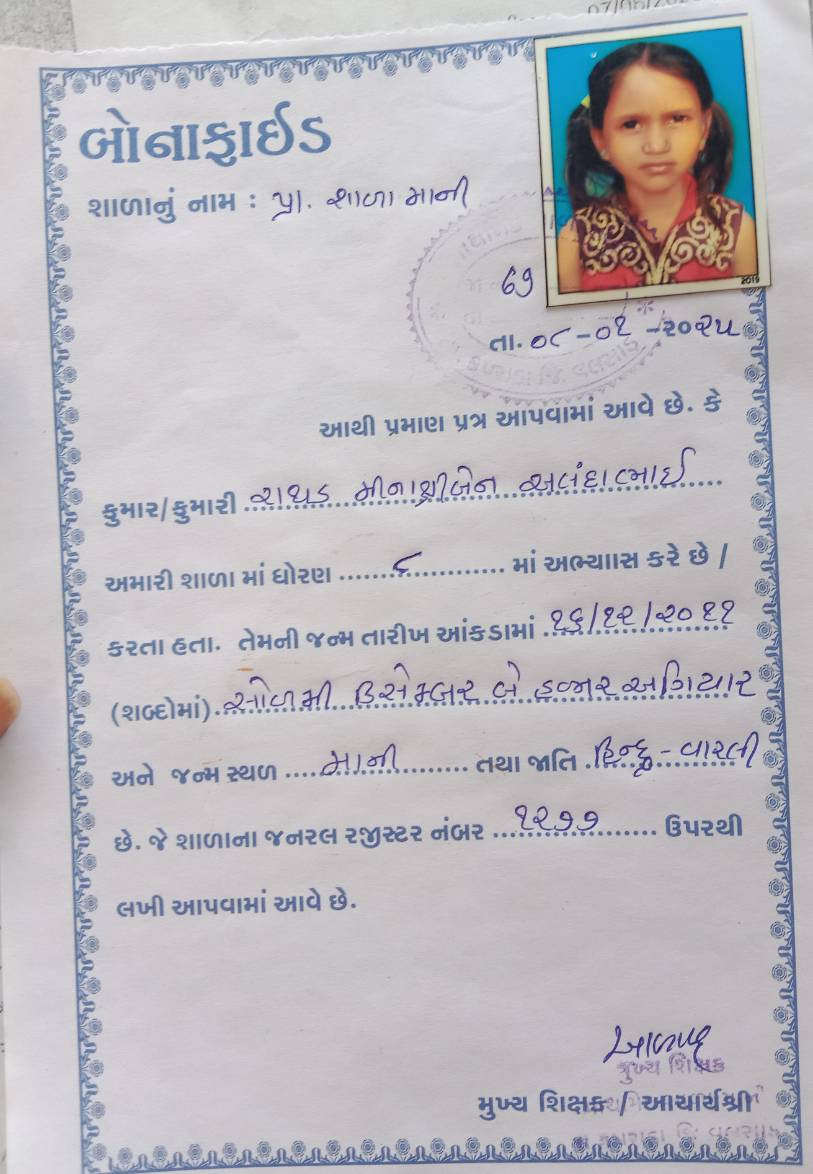 07/06/20
બોનાફાઈડ
શાળાનું નામ : પ્રા. શાળા માની
2019
69
તા. ૦૮-૦૧-૨૦૨૫
આથી પ્રમાણ પત્ર આપવામાં આવે છે. કે
કુમાર/કુમારી રાથડ મીનાક્ષીબેન અલંદાભાઈ
અમારી શાળા માં ધોરણ ૮ માં અભ્યાાસ કરે છે /
કરતા હતા. તેમની જન્મ તારીખ આંકડામાં ૧૬/૧૨/૨૦૧૧
(શબ્દોમાં) સોળમી ડિસેમ્બર બે હજાર અગિયાર
અને જન્મ સ્થળ માની તથા જાતિ હિન્દુ - વારલી
છે. જે શાળાના જનરલ રજીસ્ટર નંબર ૧૨૭૭ ઉપરથી
લખી આપવામાં આવે છે.
મુખ્ય શિક્ષક
મુખ્ય શિક્ષક / આચાર્યશ્રી